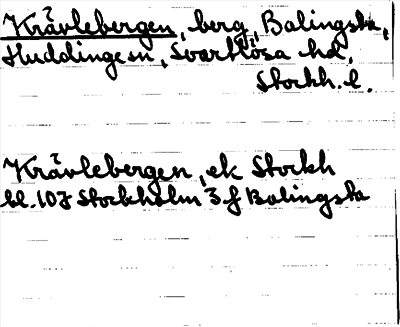 Krävlebergen, berg, Balingsta,
Huddinge sn, Svartlösa hd,
Stockh. l.
Krävlebergen, ek Stockh
bl. 107 Stockholm 3 f Balingsta